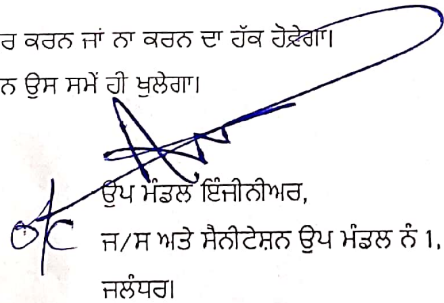 ਰ ਕਰਨ ਜਾਂ ਨਾ ਕਰਨ ਦਾ ਹੱਕ ਹੋਵੇਗਾ।
ਨ ਉਸ ਸਮੇਂ ਹੀ ਖੁਲੇਗਾ।
ਉਪ ਮੰਡਲ ਇੰਜੀਨੀਅਰ,
o/c
ਜ/ਸ ਅਤੇ ਸੈਨੀਟੇਸ਼ਨ ਉਪ ਮੰਡਲ ਨੰ 1,
ਜਲੰਧਰ।